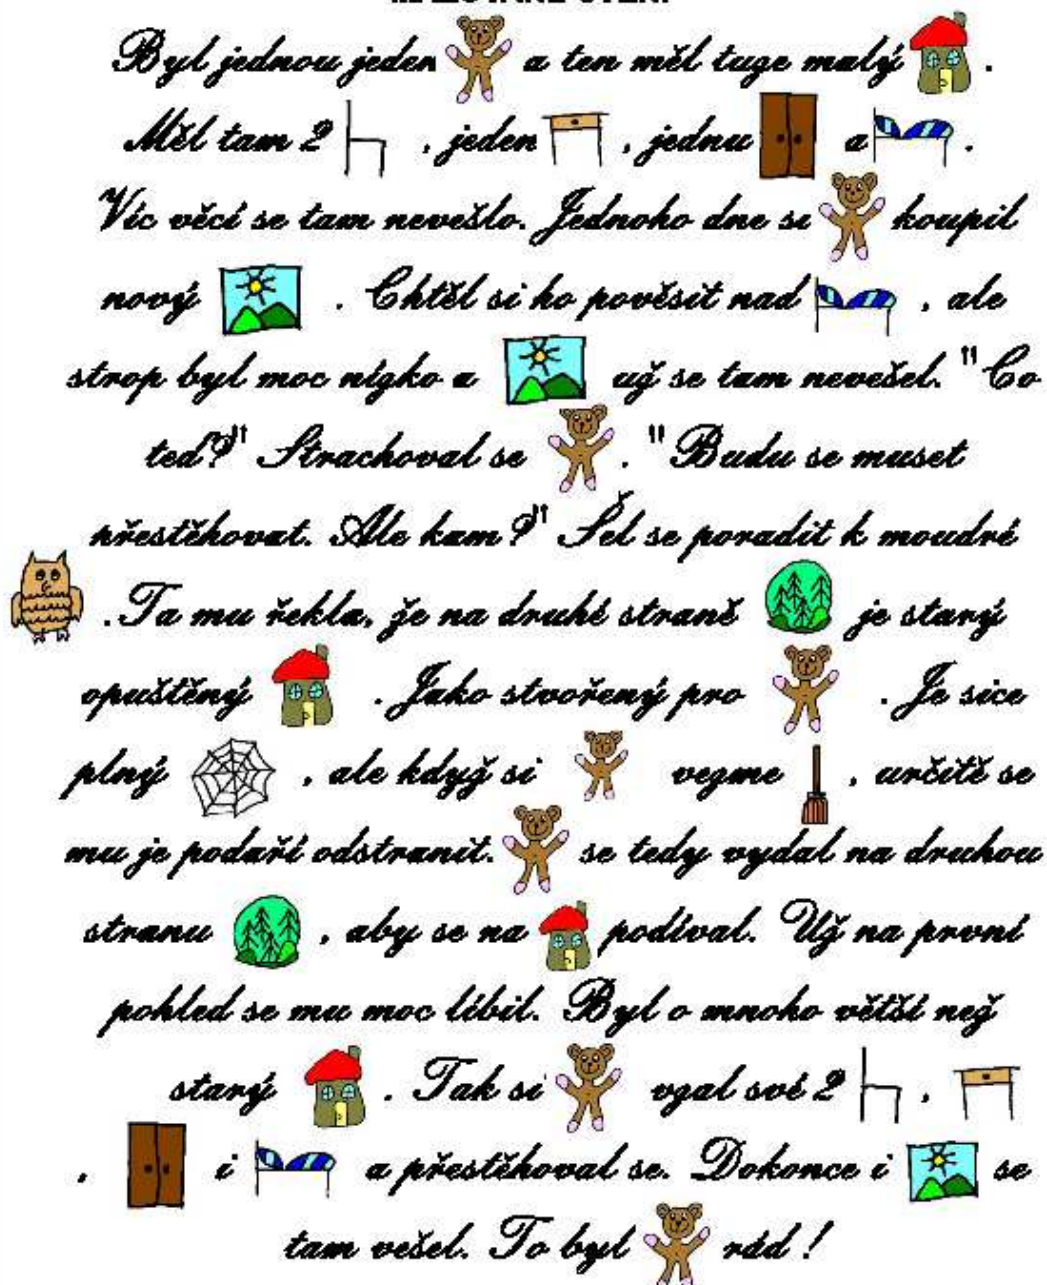 Byl jednou jeden a ten měl tuze malý .
Měl tam 2 , jeden , jednu a .
Víc věcí se tam nevešlo. Jednoho dne si koupil
nový . Chtěl si ho pověsit nad , ale
strop byl moc nízko a už se tam nevešel. "Co
teď?" Strachoval se . "Budu se muset
přestěhovat. Ale kam?" Šel se poradit k moudré
. Ta mu řekla, že na druhé straně je starý
opuštěný . Jako stvořený pro . Je sice
plný , ale když si vezme , určitě se
mu je podaří odstranit. se tedy vydal na druhou
stranu , aby se na podíval. Už na první
pohled se mu moc líbil. Byl o mnoho větší než
starý . Tak si vzal své 2 , 
, i a přestěhoval se. Dokonce i se
tam vešel. To byl rád !